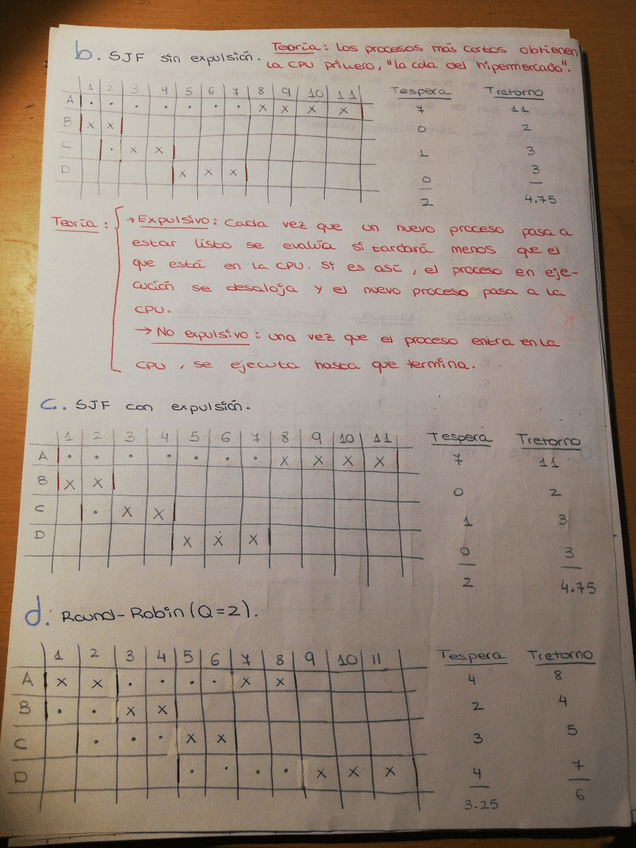 b. SJF sin expulsión. Teoría: Los procesos más cortos obtienen
la CPU primero, "la cola del hipermercado".
1 2 3 4 5 6 7 8 9 10 11 Tespera Tretorno
A • • • • • • • X X X X 7 11
B X X 0 2
C • X X 1 3
D X X X 0 3
2 4.75
Teoría: → Expulsivo: Cada vez que un nuevo proceso pasa a
estar listo se evalúa si tardará menos que el
que está en la CPU. Si es así, el proceso en eje-
cución se desaloja y el nuevo proceso pasa a la
CPU.
→ No expulsivo: una vez que el proceso entra en la
CPU, se ejecuta hasta que termina.
c. SJF con expulsión.
1 2 3 4 5 6 7 8 9 10 11 Tespera Tretorno
A • • • • • • • X X X X 7 11
B X X 0 2
C • X X 1 3
D X X X 0 3
2 4.75
d. Round-Robin (Q=2).
1 2 3 4 5 6 7 8 9 10 11 Tespera Tretorno
A X X • • • • X X 4 8
B • • X X 2 4
C • • • X X 3 5
D • • • • X X X 4 7
3.25 6